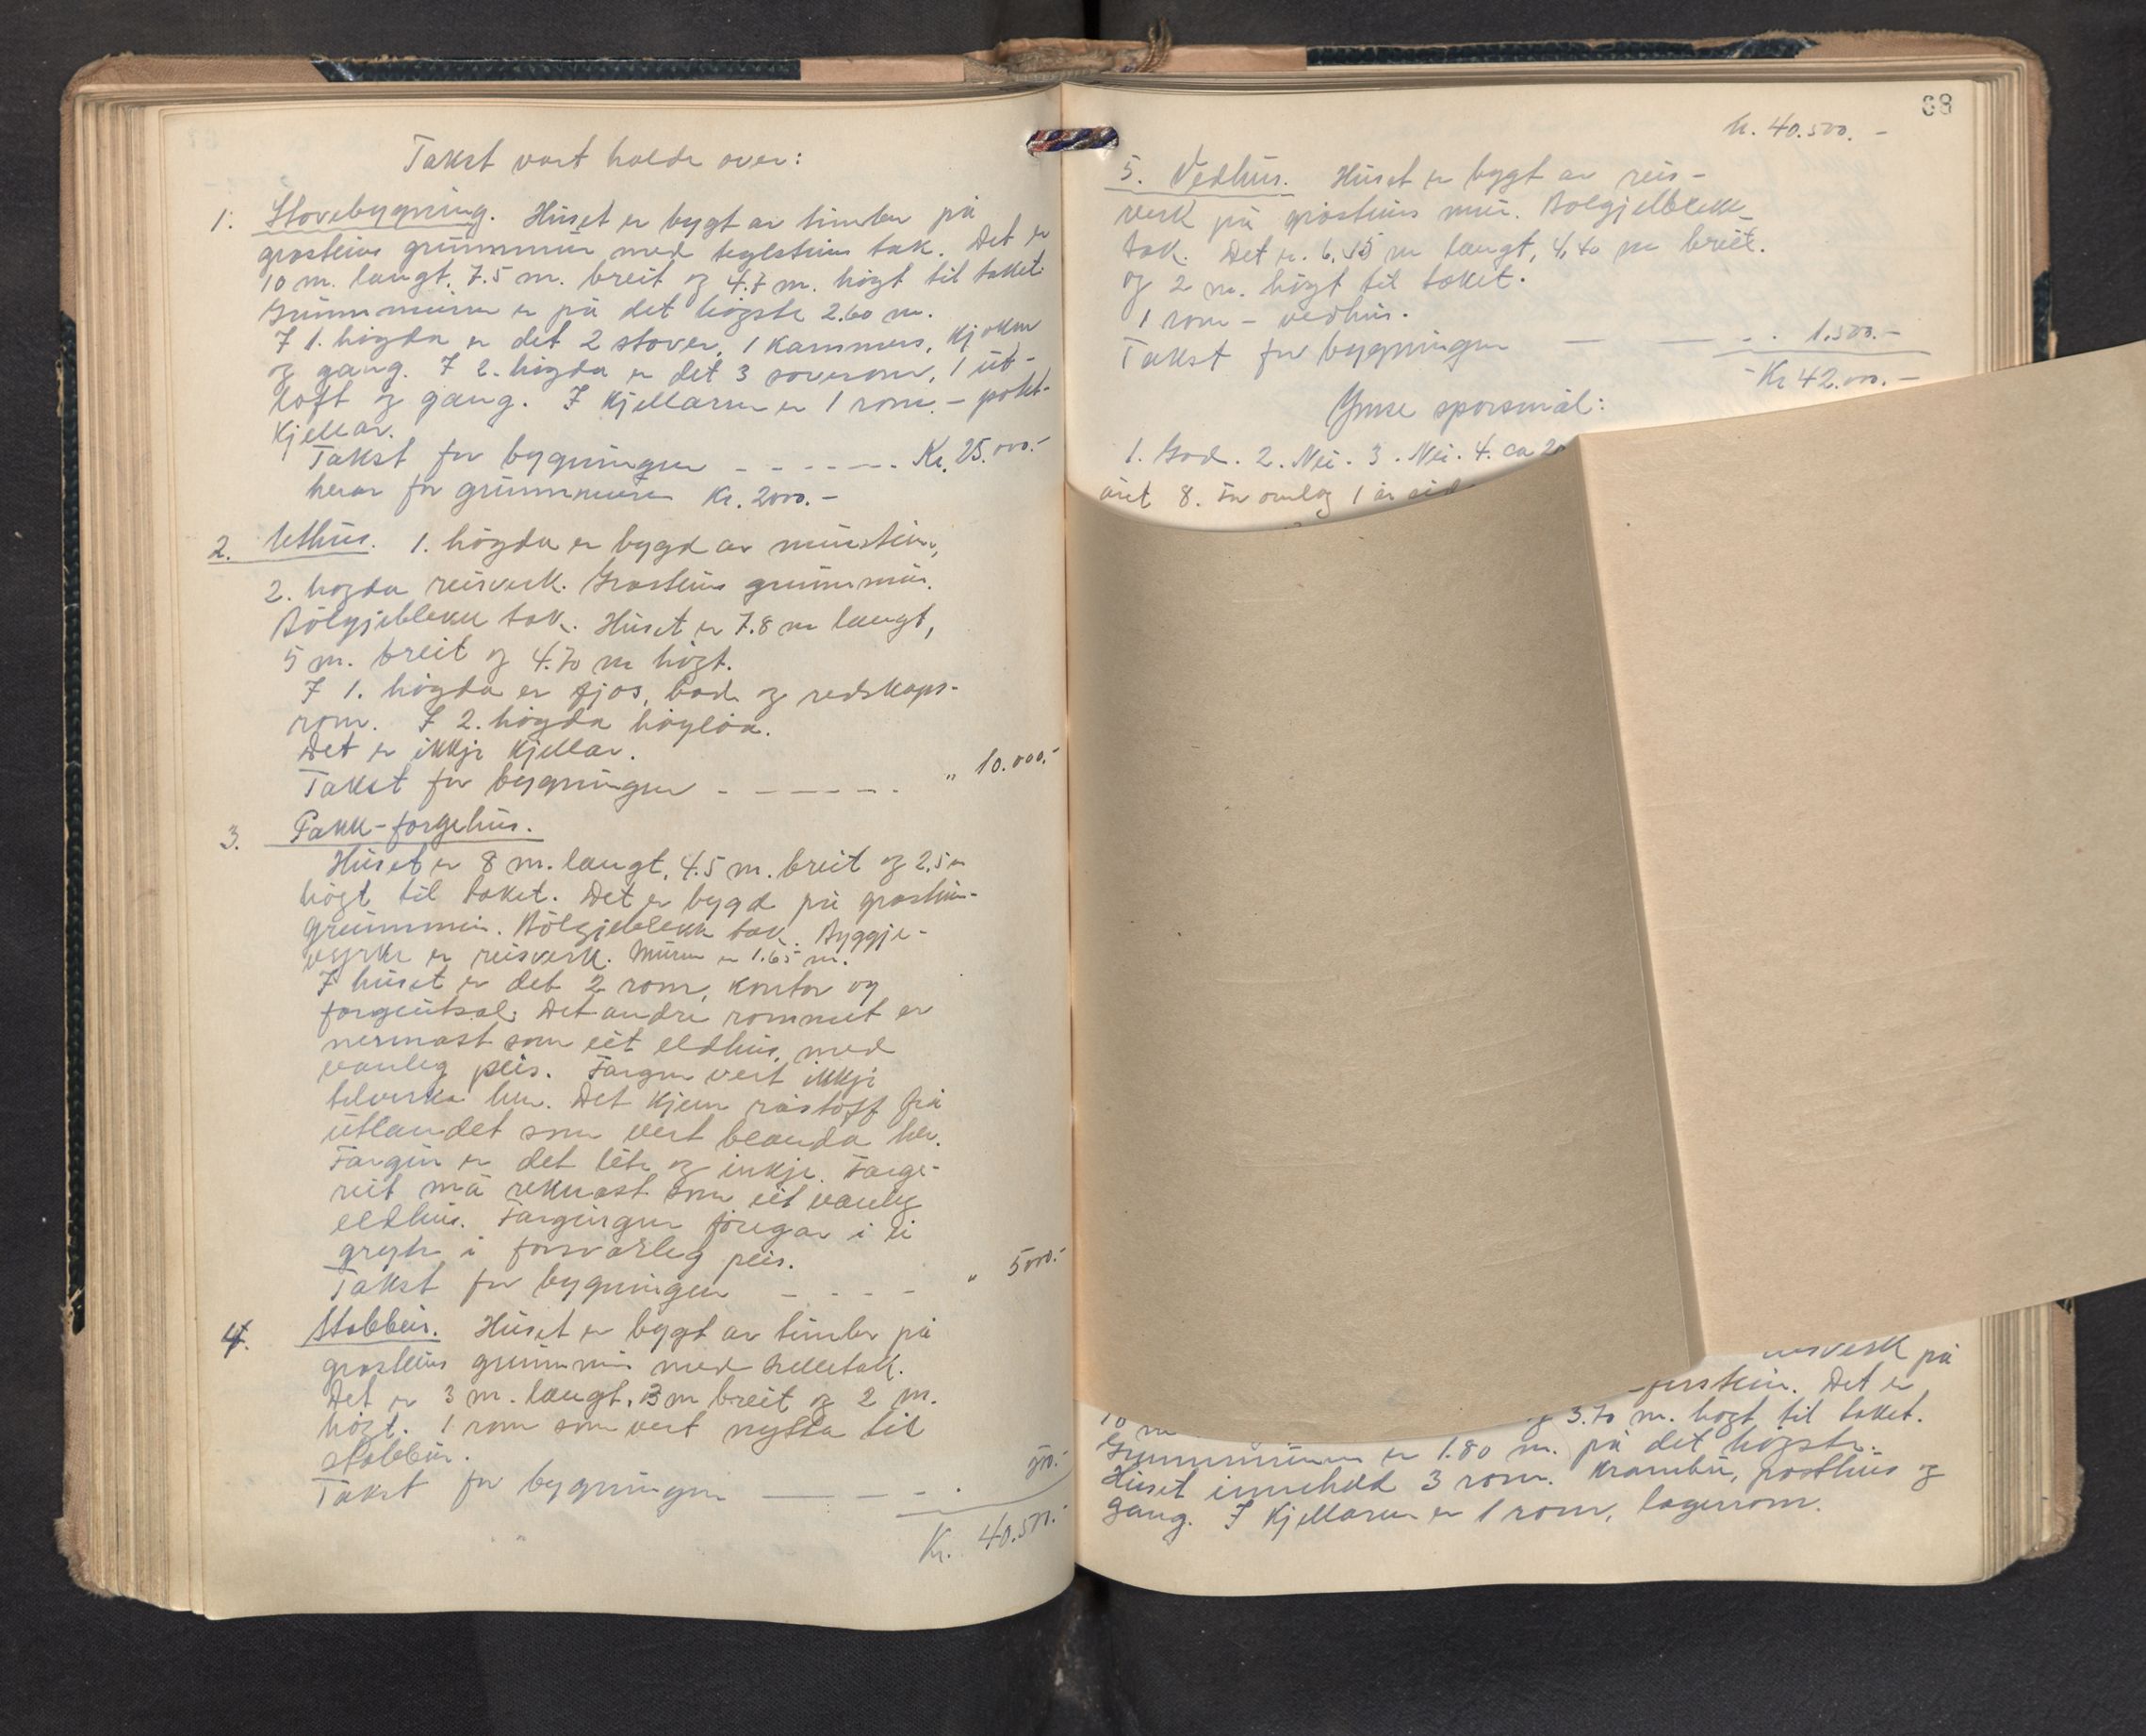 Takst vart halde over:
1. Stovebygning. Huset er bygt av timber på
grosteins grunnmur med teglsteins tak. Det er
10 m. langt, 7.5 m. breit og 4.7 m. högt til taket.
Grunnmuren er på det högste 2.60 m.
I 1. högda er det 2 stover, 1 kammers, kjøken
og gang. I 2. högda er det 3 soverom, 1 ut-
loft og gang. I kjellaren er 1 rom - potet-
kjellar.
Takst for bygningen - - - - - - - Kr. 25.000.-
herav for grunnmuren Kr. 2000.-
2. Uthus. 1. högda er bygd av murstein,
2. högda reisverk. Grosteins grunnmur.
Bölgjeblekk tak. Huset er 7.8 m langt,
5 m. breit og 4.70 m högt.
I 1. högda er fjos, bod og redskaps-
rom. I 2. högda höyløa.
Det er ikkje kjellar.
Takst for bygningen - - - - - - - " 10.000.-
3. Pakk-forgehus.
Huset er 8 m. langt, 4.5 m. breit og 2,5 m
högt til taket. Det er bygd på grostein-
grunnmur. Bölgjeblekk tak. Byggje-
verke er reisverk. Muren er 1.65 m.
I huset er det 2 rom, kontor og
fargeutsal. Det andre rommet er
nermast som eit eldhus, med
vanleg peis. Fargen vert ikkje
tilverka her. Det kjem råstoff frå
utlandet som vert blanda her.
Fargin er det lite og inkje. Farge-
riit må reknast som eit vanleg
eldhus. Fargingen föregar i ei
gryte i forsvarleg peis.
Takst for bygningen - - - - " 5000.-
4. Stabbur. Huset er bygt av timber på
grosteins grunnmur med helletak.
Det er 3 m. langt, 3 m breit og 2 m.
högt. 1 rom som vert nytta til
stabbur.
Takst for bygningen - - - 500.-
Kr. 40.500.-
68
kr. 40.500.-
5. Vedhus. Huset er bygt av reis-
verk på grosteins mur. Bolgjeblekk
tak. Det er 6,45 m langt, 4,40 m breit.
og 2 m. högt til taket.
1 rom - vedhus.
Takst for bygningen - - - . 1.500.-
Kr 42.000.-
Ymse sporsmål:
1. God. 2. Nei. 3. Nei. 4. ca 20
året 8. For omlag 1 år sid
reisverk på
Det er
10 m
og 3.70 m. högt til taket.
Grunnmuren er 1.80 m. på det högste.
Huset inneheld 3 rom. Krambu, posthus og
gang. I kjellaren er 1 rom, lagerrom.